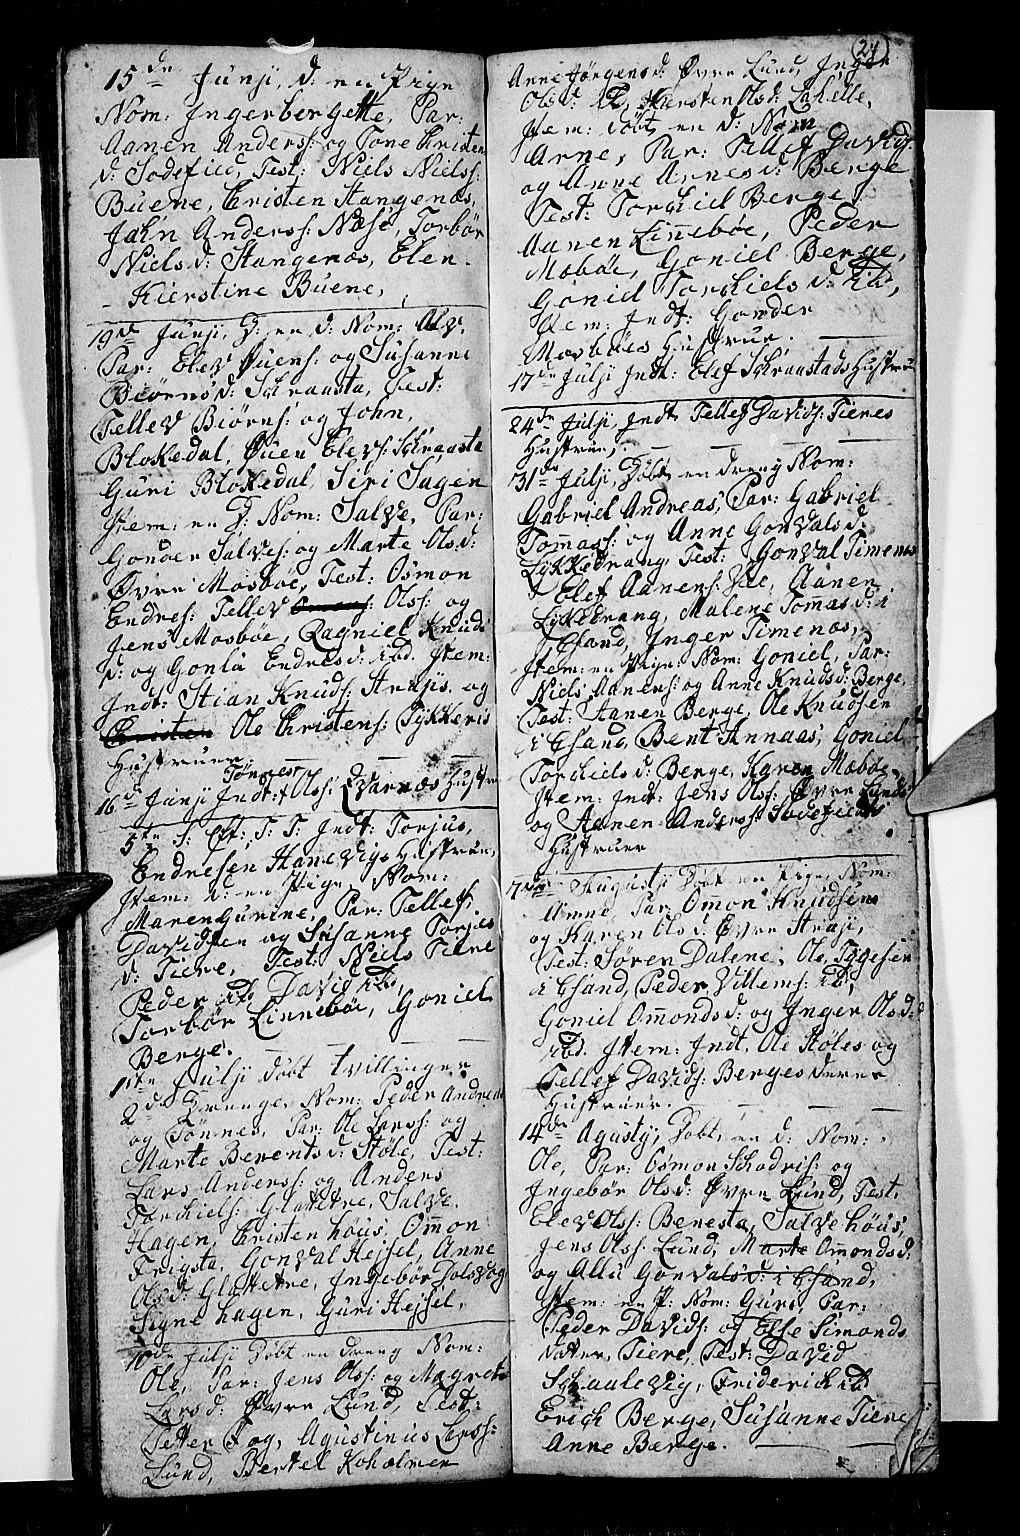 15de Junji, d: en Pige
Nom: Ingerbergette, Par:
Aanen Anders: og Tone Christen
d: Sodefied, Test: Niels Niels:
Buene, Christen Stangenæs,
Jahn Anders: Næse, Torbør
Niels d: Stangenæs, Elen
Kierstine Buene,
19de Junji, D: en d: Nom: Olv.
Par: Elev Øuens: og Susanne
Biörns d: Schraasta, Test:
Tellev Biörns: og John
Blokedal, Øuen Elevs: Schraasta
Guri Blokedal, Siri Sagen
Item: en D: Nom: Salve, Par:
Gonder Salves: og Marte Ols d:
Øvre Mosbøe, Test: Osmon
Endres: Tellev Omons: Olss: og
Jens Mosbøe, Ragniel Knuds
d: og Gonla Endres d: ibd. Item:
Indt: Stian Knuds: Straiis og
Christen Ole Christens: Pykkeris
Hustruer
Tønnes
16de Junji Indt: Olss: Qvarnes Hustru
5te S: Eft: T: T: Indt: Torjus,
Endresen Hanevigs Hustrue,
Item: d: en Pige, Nom:
Maren Gurine, Par: Tellef:
Davidsen og Susanne Torjus
d: Tiere, Test: Niels Tiere
Peder ibd, David ibd,
Torbør Linnebøe, Goniel
Berge.
1ste Julji døbt tvillinger
2de Drenge, Nom: Peder Andreas
og Tønnes, Par: Ole Larss: og
Marte Berents d: Støle, Test:
Lars Anderss: og Anders
Torkiels: Glattetre, Salve
Hagen, Christen höus, Ommon
Frigsta, Gonval Hejsel, Anne
Ols d: Glattetre, Ingebør Dolsvog
Signe hagen, Guri Hejsel,
10de Julji Døbt en dreng Nom:
Ole, Par: Jens Olss: og Magrete
Lars d: Øvre Lund, Test:
Petter Fog, Agustinius Larss:
Lund, Bertel Koholmen
24
Anne Jørgens d: Øvre Lund, Inger
Ols d: ibd, Kiersten Ols d: Lahelle,
Item: døbt en d: Nom
Arne, Par: Tellef Davids:
og Anne Arnes d: Berge
Test: Torkiel Berge,
Aanen Linnebøe, Peder
Mobøe, Goniel Berge,
Goniel Torkiels d: ibd,
Item: Indt: Gonder
Mosbøes Hustrue.
17de Julji Indt: Elef Schraastads Hustrue
24de Julji, Indt Tellef Davids: Tieres
Hustrue,
31de Julji, Døbt en dreng Nom:
Gabriel Andreas, Par: Gabriel
Tommas: og Anne Gonvals d:
Lykkedrang, Test: Gonval Timenes
Elef Aanens: Vie, Aanen
Lykkedrang, Malene Tommas d: i
Ehsand, Inger Timenæs,
Item: en Pige Nom: Goniel, Par:
Niels Aanens: og Anne Knuds d: Berge,
Test: Aanen Berge, Ole Knudsen
i Ehsand, Bent Annaas, Goniel
Torkiels d: Berge, Karen Mobøe,
Item: Indt: Jens Olss: Øvre Lunds
og Aanen Anders: Sodefieds
Hustruer
7de Augustji Døbt en Pige, Nom:
Anne, Par. Omon Knudsen
og Karen Ols d: Øvre Straji,
Test: Søren Dalene, Ole Tygesen
i Ehsand, Peder Villems: ibd,
Goniel Ommonds d: og Inger Ols d:
ibd. Item: Indt. Ole Støles og
Tellef Davids: Berges deres
Hustruer.
14de Agustij, Døbt, en d: Nom:
Ole, Par: Osmon Schodris: og
Ingebør Ols d: Øvre Lund, Test.
Elev Olss: Benesta, Salve höus,
Jens Olss: Lund, Marte Ommonds d:
og Alla Gonvals d: i Ehsand,
Item: en P: Nom: Guro, Par:
Peder Davids: og Else Simonds
datter, Tiere, Test: David
Schaalevig, Friderich ibd
Erich Berge, Susanne Tiere
Anne Berge.